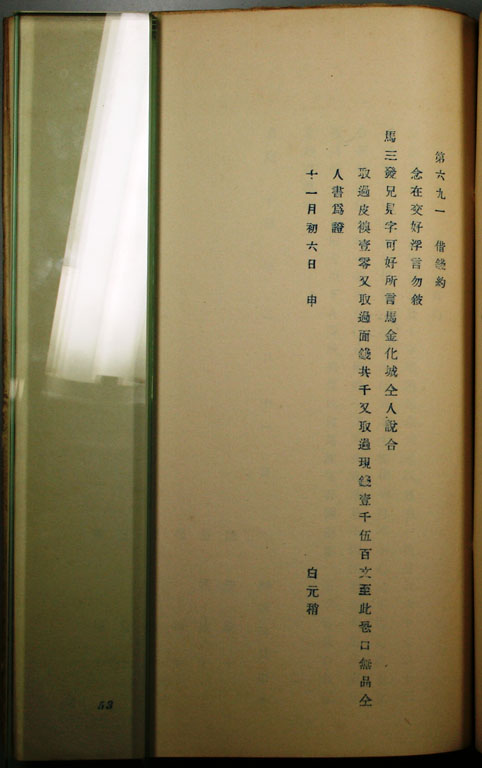 第六九一 借錢約
念在交好浮言勿敘
馬三發兄見字可好所言馬金化城仝人說合
取過皮襖壹零又取過面錢共千又取過現錢壹千伍百文至此悉口無品仝
人書爲證
十一月初六日 申 白元稽
53